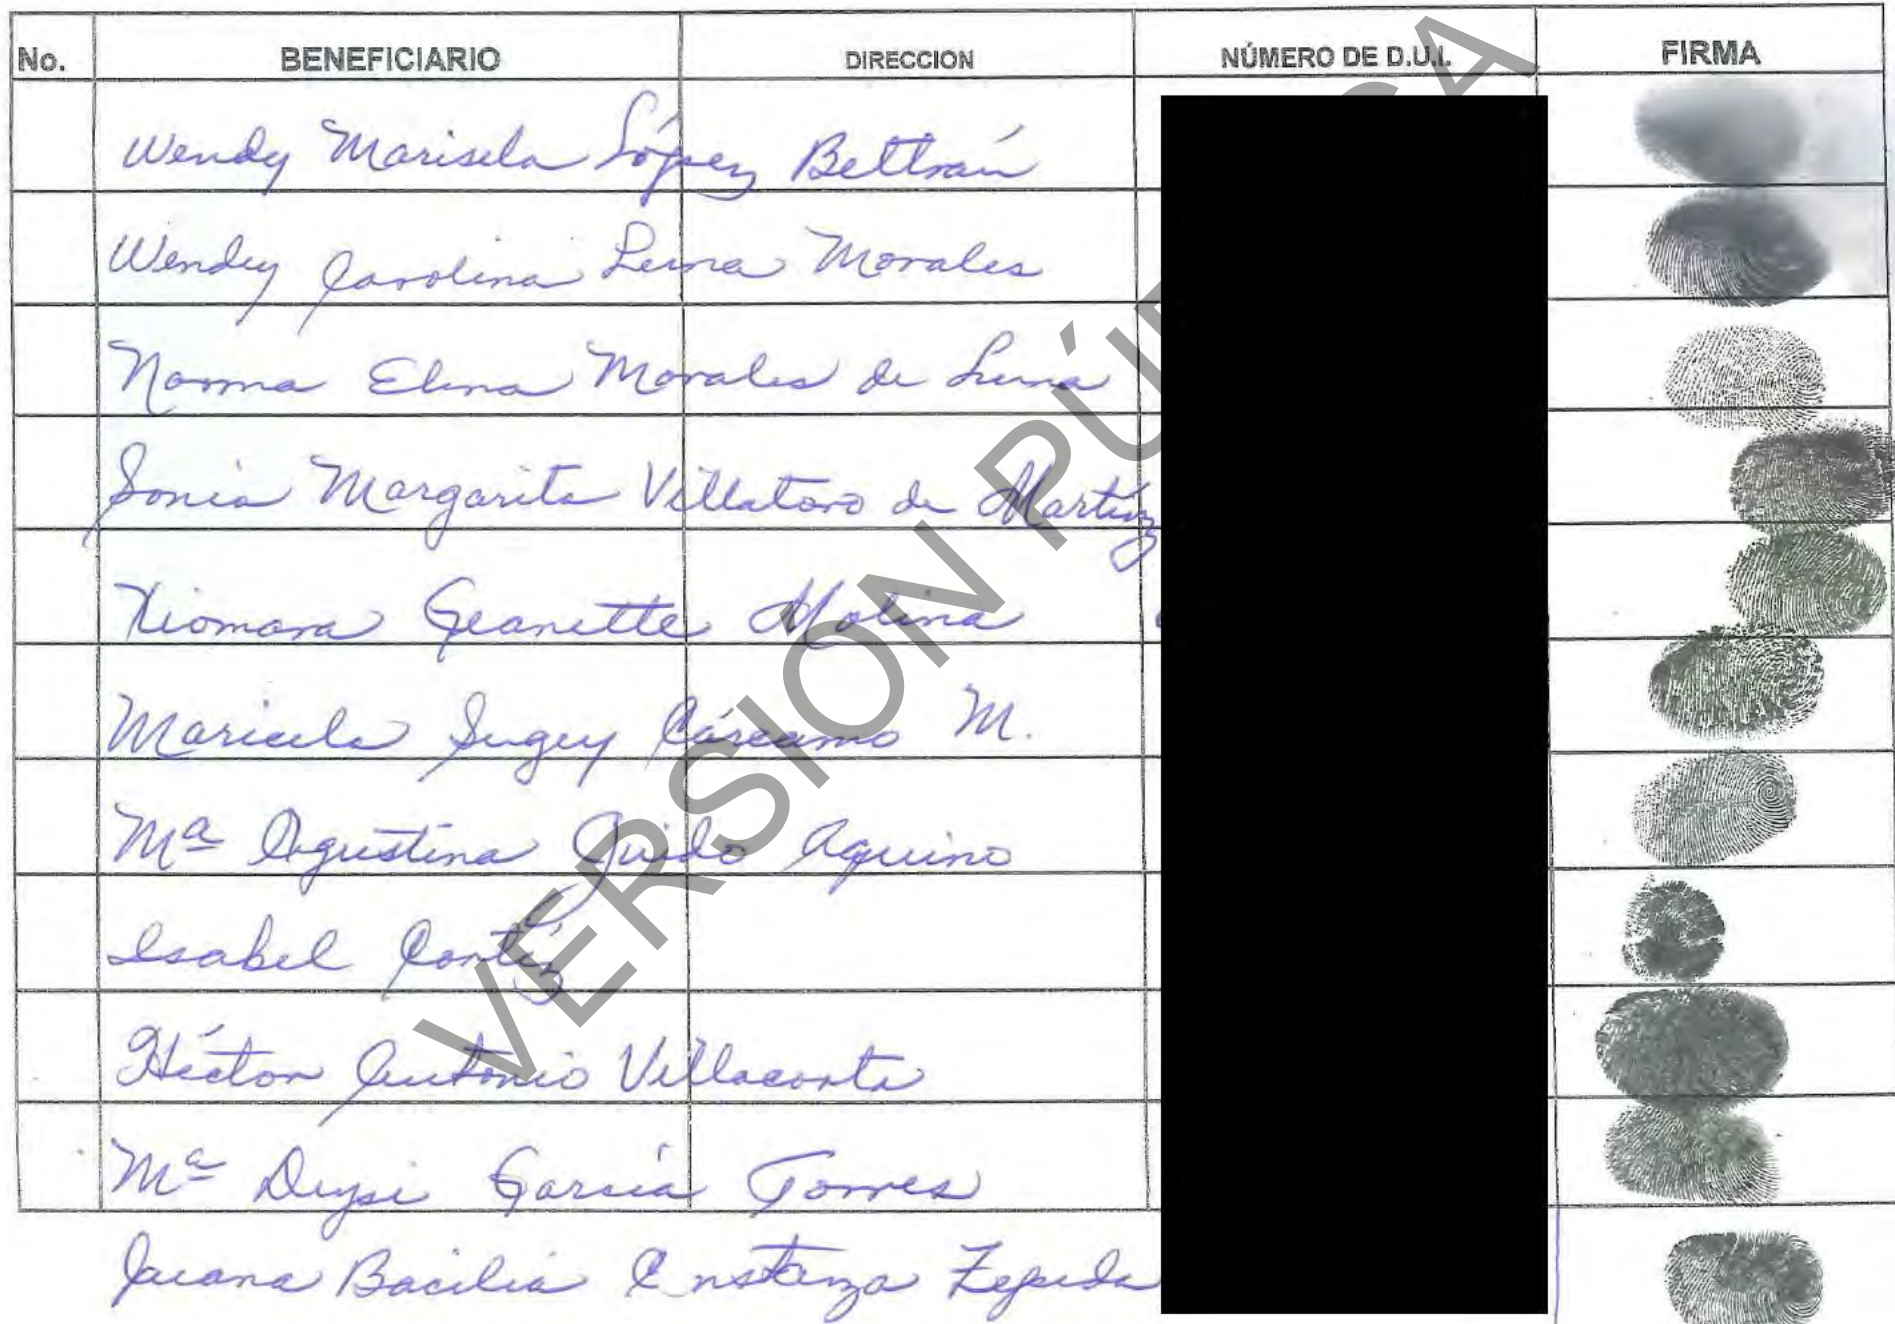 No. BENEFICIARIO DIRECCION NÚMERO DE D.U.I. FIRMA
Wendy Marisela López Beltrán
Wendy Carolina Luna Morales
Norma Elena Morales de Luna
Sonia Margarita Villatoro de Martínz
Xiomara Geanette Molina
Maricela Sugey Cárcamo M.
Mª Agustina Guido Aquino
Isabel Cortéz
Héctor Antonio Villacorta
Mª Deysi García Torres
Juana Bacilia Constanza Zepeda
VERSIÓN PÚ